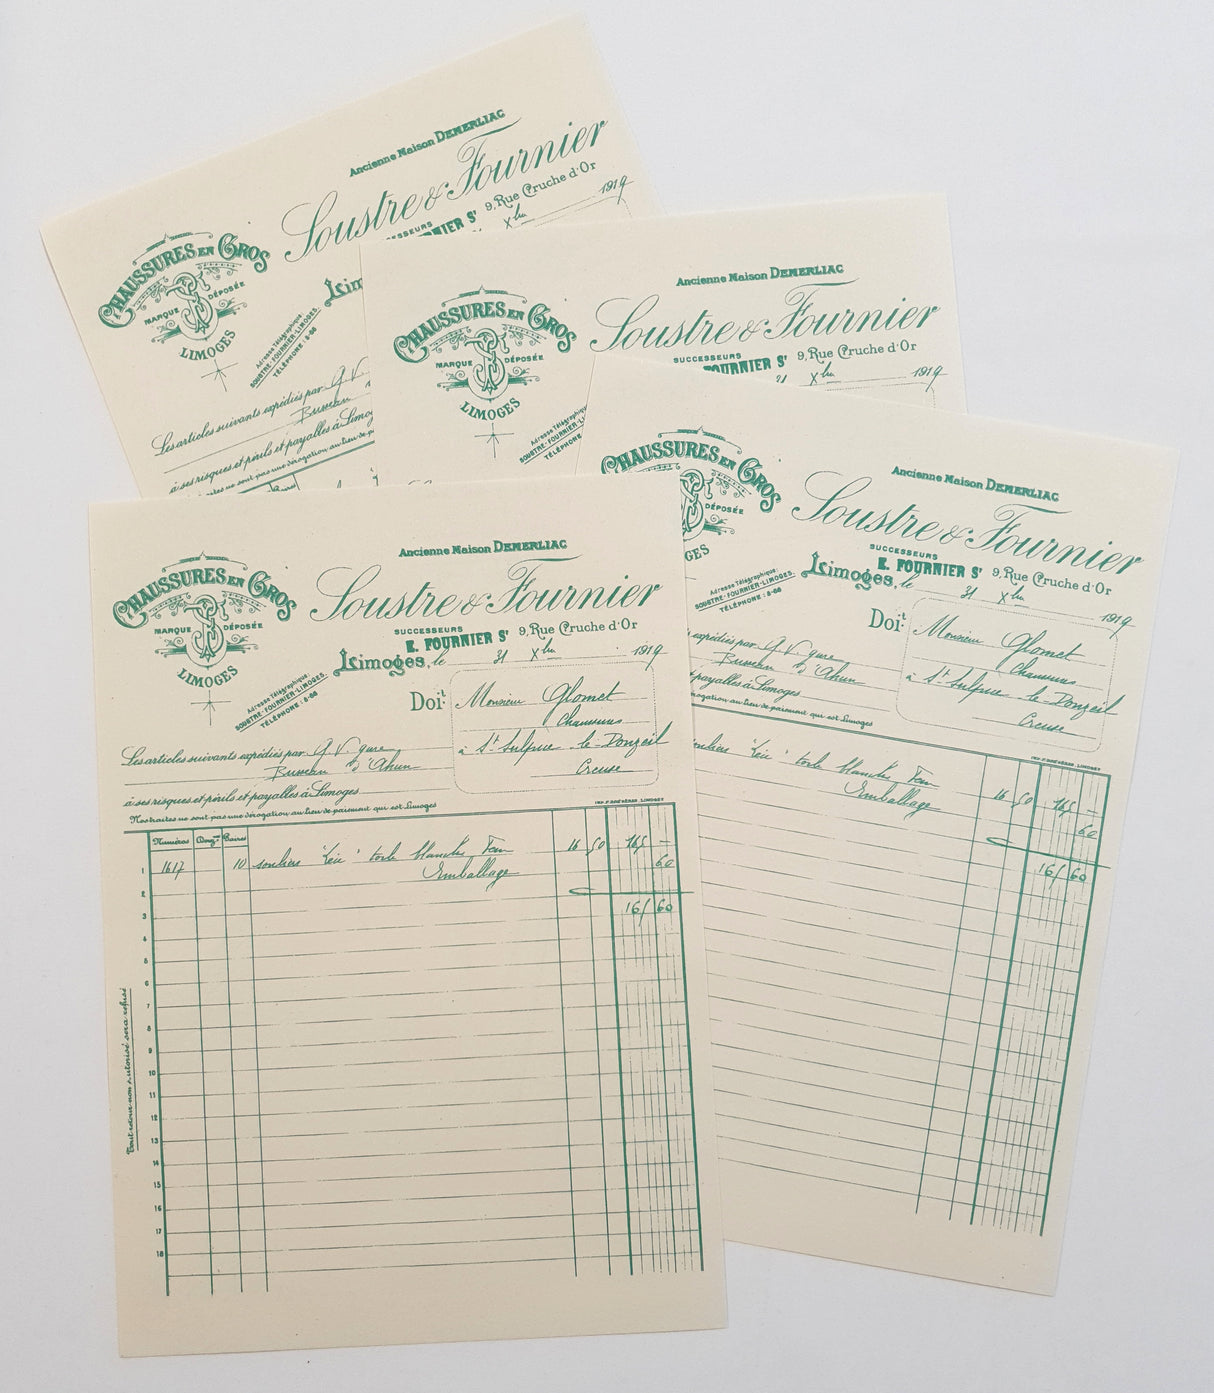 Ancienne Maison DEMERLIAC
Soustre & Fournier
SUCCESSEURS
FOURNIER Sr 9, Rue Cruche d'Or
Xbre 1919
CHAUSSURES EN GROS
MARQUE DÉPOSÉE
LIMOGES
Adresse Télégraphique:
SOUSTRE-FOURNIER-LIMOGES.
TÉLÉPHONE: 8-66
Les articles suivants expédiés par G.V.
Bureau
à ses risques et périls et payables à Limoges
Ancienne Maison DEMERLIAC
Soustre & Fournier
SUCCESSEURS
FOURNIER Sr 9, Rue Cruche d'Or
31 Xbre 1919
CHAUSSURES EN GROS
MARQUE DÉPOSÉE
LIMOGES
Adresse Télégraphique
SOUSTRE-FOURNIER-LI
TÉLÉPHONE
CHAUSSURES EN GROS
DÉPOSÉE
Ancienne Maison DEMERLIAC
Soustre & Fournier
SUCCESSEURS
E. FOURNIER Sr 9, Rue Cruche d'Or
Limoges, le 31 Xbre 1919
Adresse Télégraphique:
SOUSTRE-FOURNIER-LIMOGES.
TÉLÉPHONE: 8-66
Doit Monsieur Glomet
Chaussures
à St Sulpice-le-Donzeil
Creuse
expédiés par G.V. gare
Bureau d'Ahun
payables à Limoges
dérogation au lieu de paiement qui est Limoges
souliers toile blanche 16 50 165 —
Emballage 60
165 60
CHAUSSURES EN GROS
MARQUE DÉPOSÉE
LIMOGES
Ancienne Maison DEMERLIAC
Soustre & Fournier
SUCCESSEURS
E. FOURNIER Sr 9, Rue Cruche d'Or
Limoges, le 31 Xbre 1919
Adresse Télégraphique:
SOUSTRE-FOURNIER-LIMOGES.
TÉLÉPHONE: 8-66
Doit Monsieur Glomet
Chaussures
à St Sulpice-le-Donzeil
Creuse
Les articles suivants expédiés par G.V. gare
Bureau d'Ahun
à ses risques et périls et payables à Limoges
Nos traites ne sont pas une dérogation au lieu de paiement qui est Limoges
Numéros Douz.nes Paires
1617 10 souliers toile blanche 16 50 165 —
1 Emballage 60
2
3 165 60
4
5
6
7
8
9
10
11
12
13
14
15
16
17
18
Tout retour non autorisé sera refusé